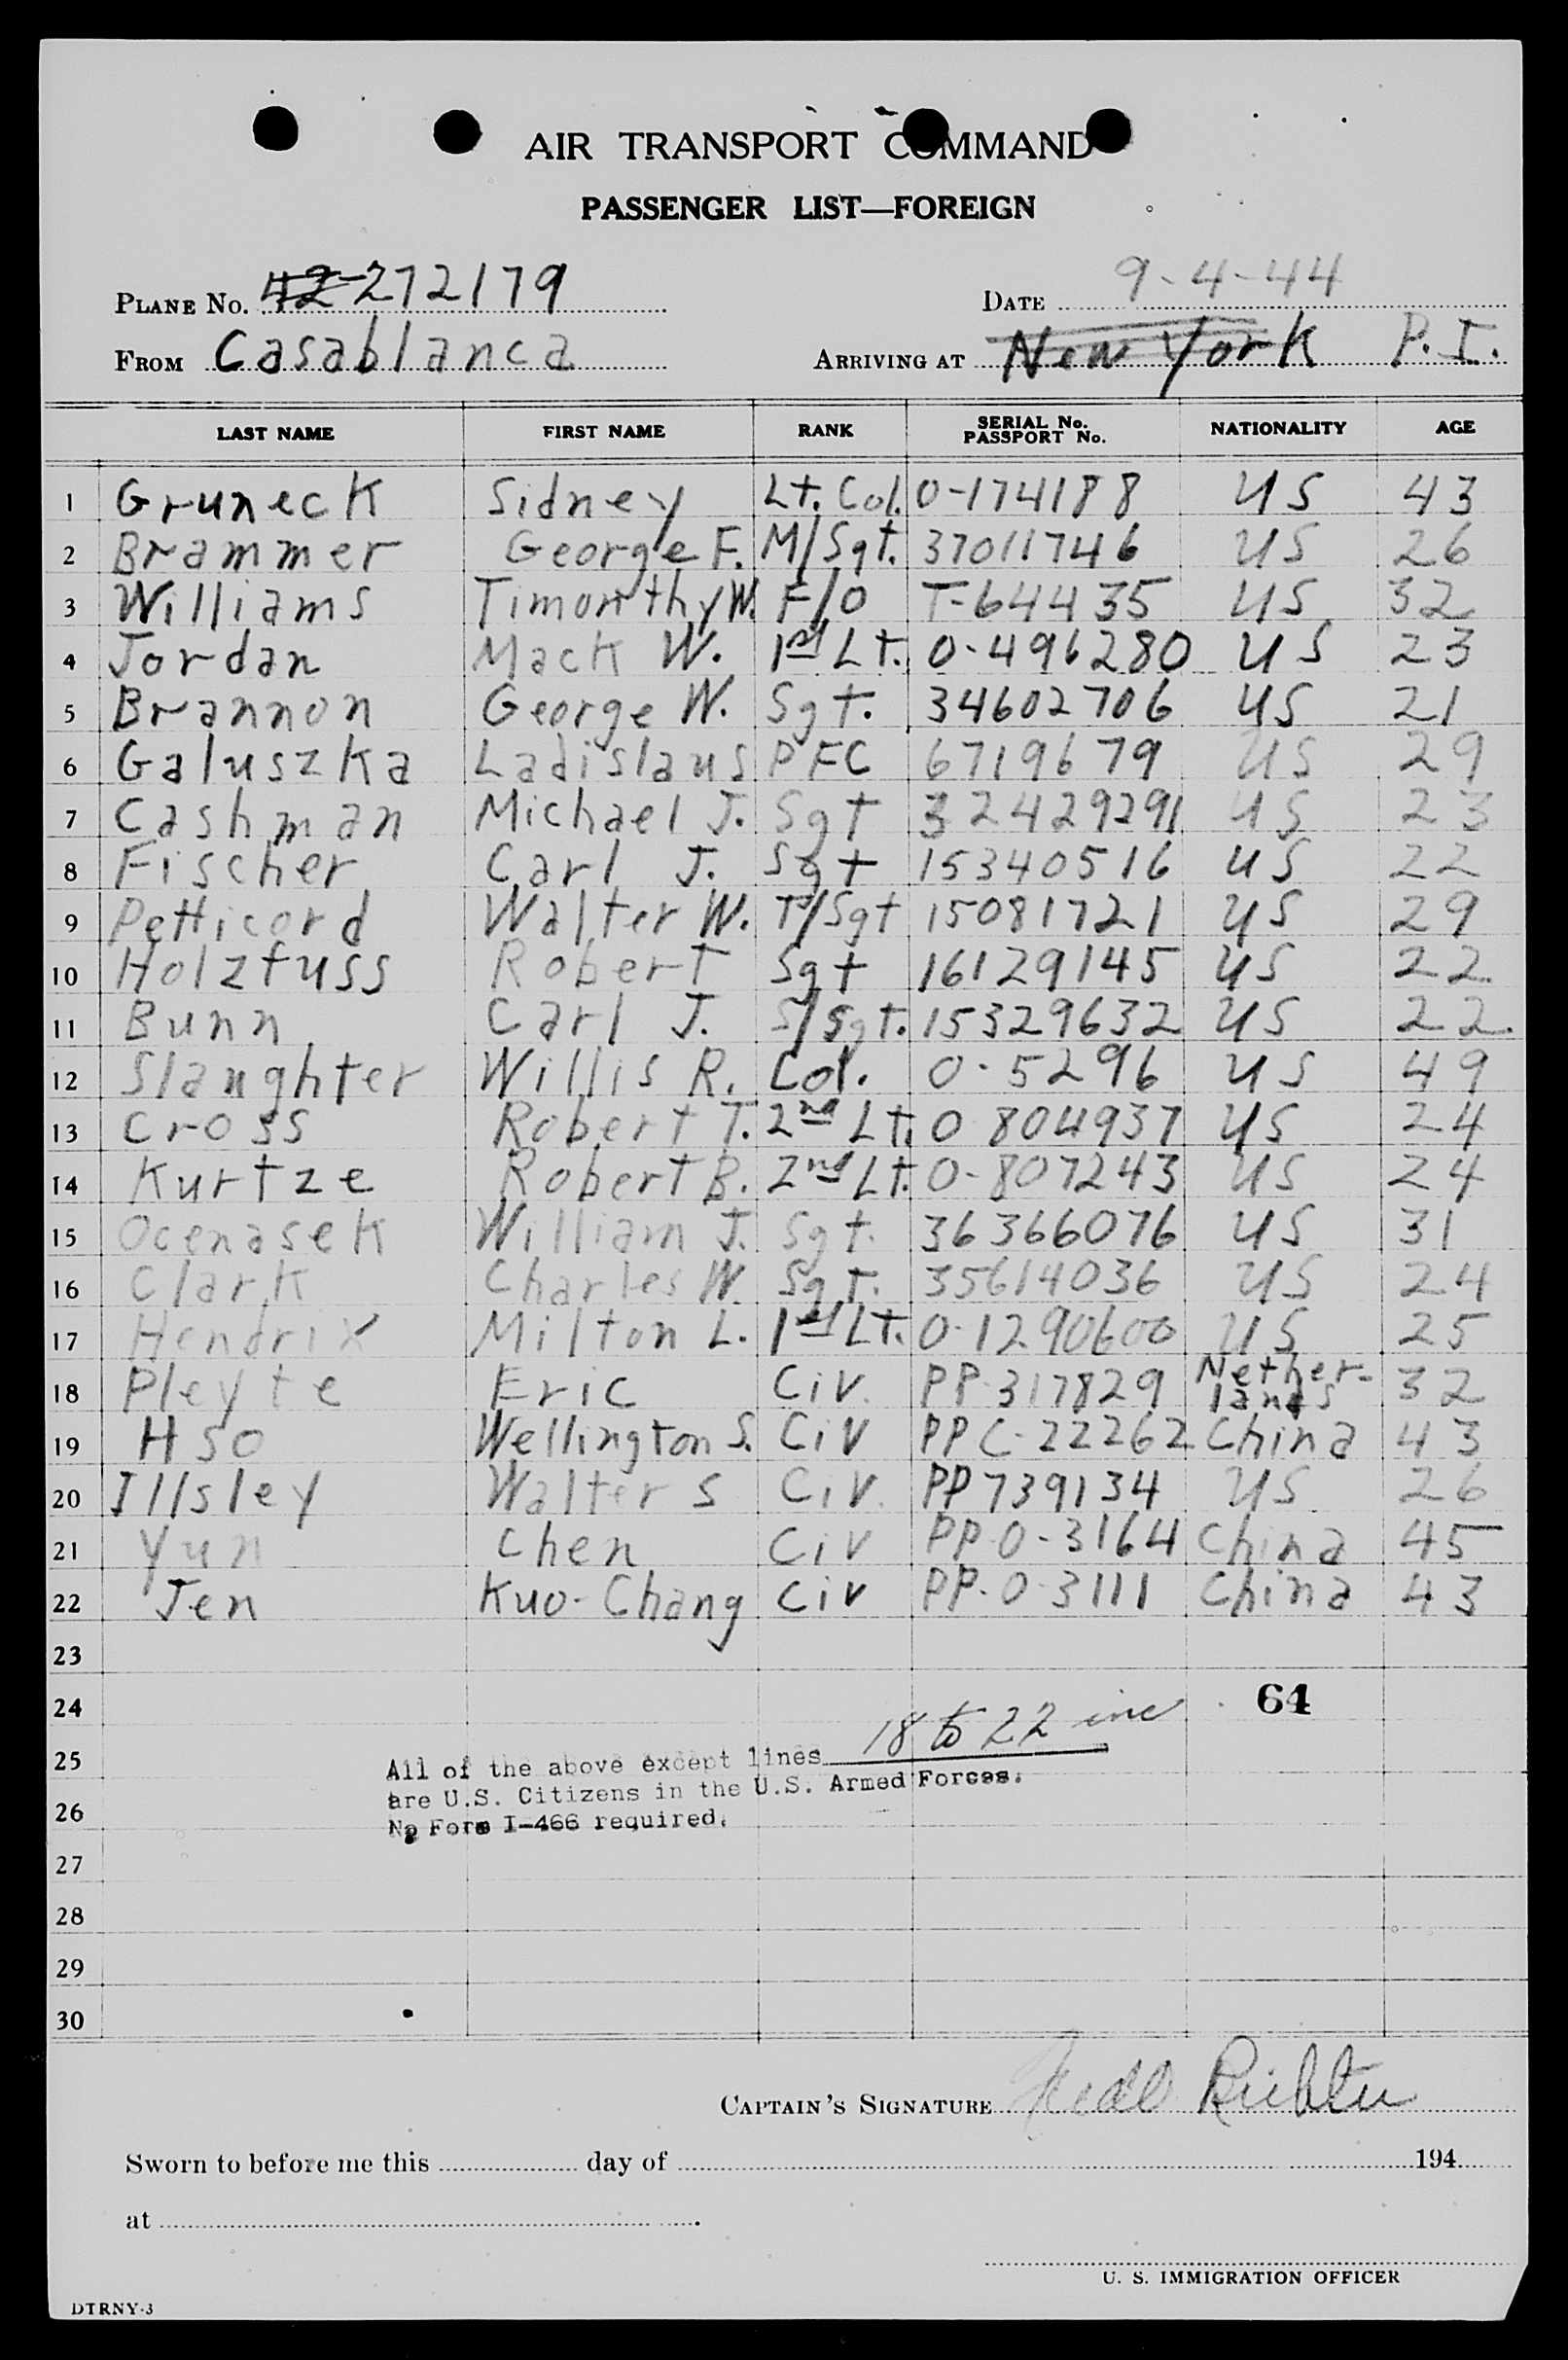 AIR TRANSPORT COMMAND
PASSENGER LIST—FOREIGN
PLANE No. 42-272179 DATE 9-4-44
FROM Casablanca ARRIVING AT New York P.I.
LAST NAME FIRST NAME RANK SERIAL No. PASSPORT No. NATIONALITY AGE
1 Gruneck Sidney Lt. Col. 0-174188 US 43
2 Brammer George F. M/Sgt. 37011746 US 26
3 Williams Timonthy W. F/O T-64435 US 32
4 Jordan Mack W. 1st Lt. 0-496280 US 23
5 Brannon George W. Sgt. 34602706 US 21
6 Galuszka Ladislaus PFC 6719679 US 29
7 Cashman Michael J. Sgt 32429291 US 23
8 Fischer Carl J. Sgt 15340516 US 22
9 Petticord Walter W. T/Sgt 15081721 US 29
10 Holzfuss Robert Sgt 16129145 US 22
11 Bunn Carl J. S/Sgt. 15329632 US 22.
12 Slaughter Willis R. Col. 0-5296 US 49
13 Cross Robert T. 2nd Lt. 0 804937 US 24
14 Kurtze Robert B. 2nd Lt. 0-807243 US 24
15 Ocenasek William J. Sgt. 36366076 US 31
16 Clark Charles W. Sgt. 35614036 US 24
17 Hendrix Milton L. 1st Lt. 0-1290600 US 25
18 Pleyte Eric Civ. PP-317829 Nether-lands 32
19 Hso Wellington S. Civ PP C-22262 China 43
20 Illsley Walter S Civ. PP 739134 US 26
21 Yun Chen Civ PP-0-3164 China 45
22 Jen Kuo-Chang Civ PP-0-3111 China 43
23
24 64
25 All of the above except lines 18 to 22 inc
are U.S. Citizens in the U.S. Armed Forces.
26 No Form I-466 required.
27
28
29
30
CAPTAIN'S SIGNATURE Richter
Sworn to before me this day of 194
at
U. S. IMMIGRATION OFFICER
DTRNY-3